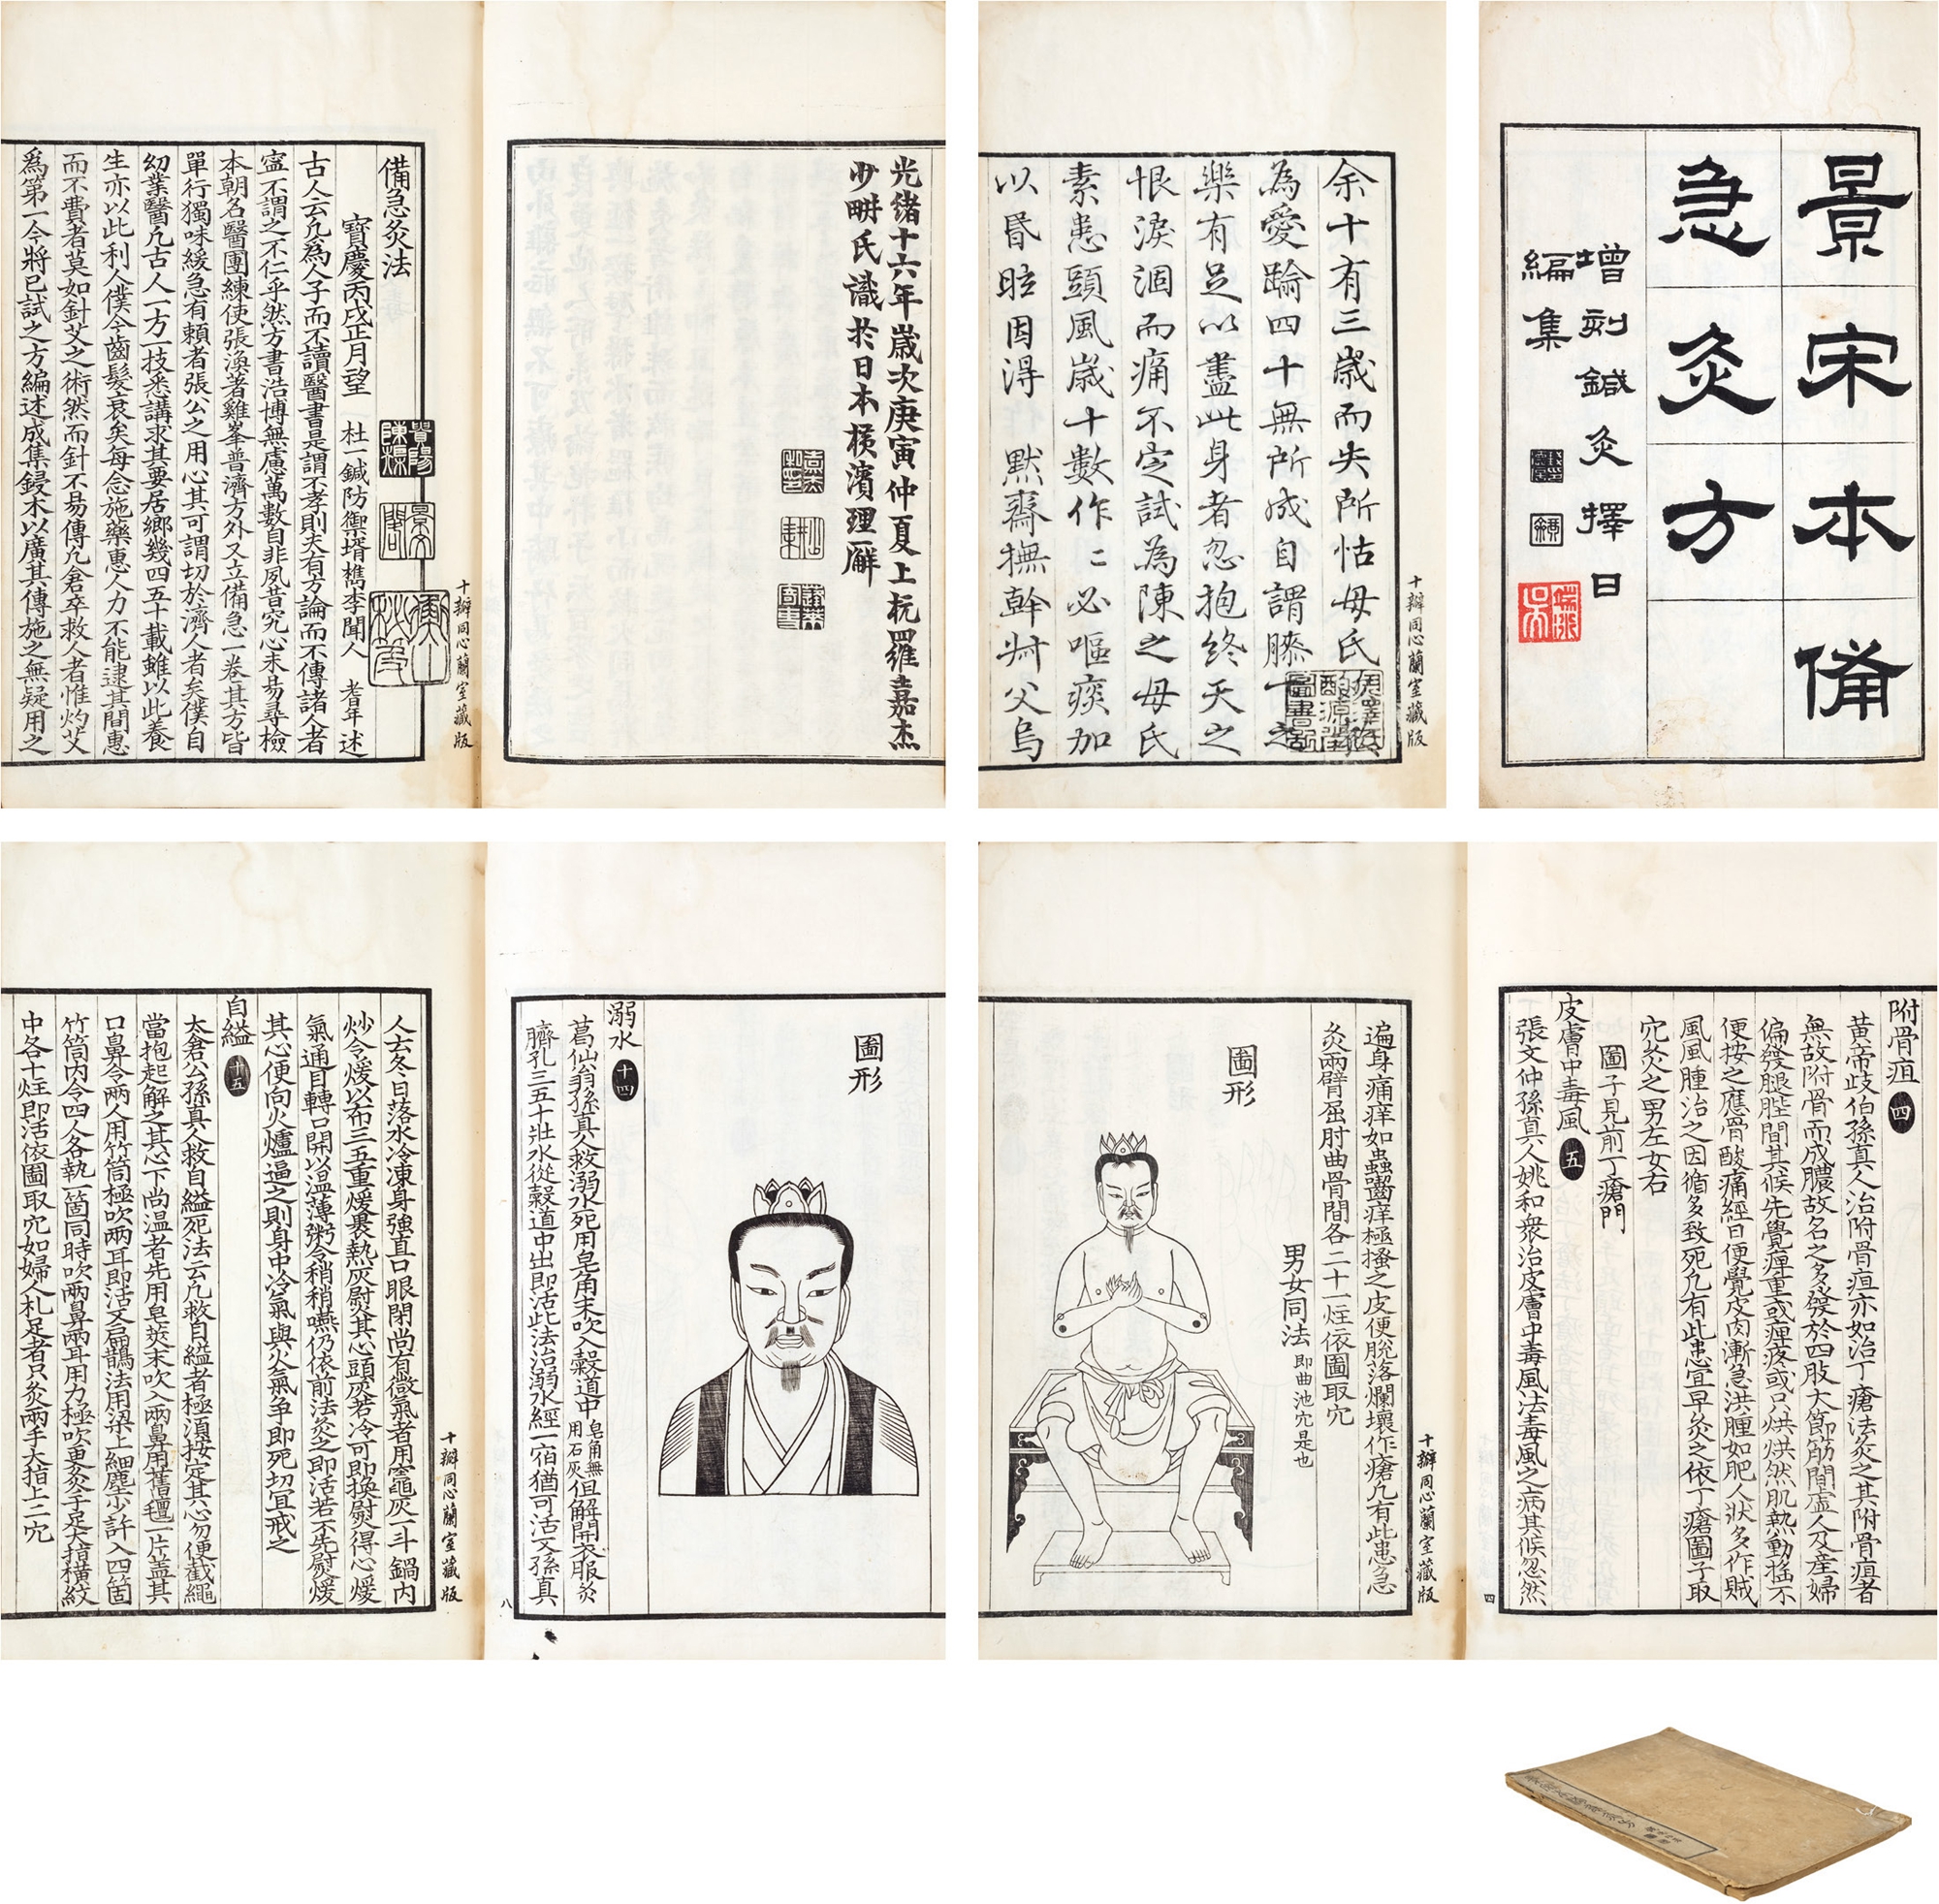 景宋本備
急灸方
增刻鍼灸擇日
編集
余十有三歲而失所怙母氏
為愛踰四十無所成自謂膝下之
樂有足以盡此身者忽抱終天之
恨淚涸而痛不定試為陳之母氏
素患頭風歲十數作作必嘔痰加
以昏眩因得 默齋撫幹舛父烏
十瓣同心蘭室藏版
光緒十六年歲次庚寅仲夏上杭羅嘉杰
少畊氏識於日本橫濱理廨
備急灸法
寶慶丙戌正月望 杜一鍼防禦壻檇李聞人 耆年述
古人云凡為人子而不讀醫書是謂不孝則夫有方論而不傳諸人者
寧不謂之不仁乎然方書浩博無慮萬數自非夙昔究心未易尋檢
本朝名醫團練使張渙著雞峯普濟方外又立備急一卷其方皆
單行獨味緩急有賴者張公之用心其可謂切於濟人者矣僕自
幼業醫凡古人一方一技悉講求其要居鄉幾四五十載雖以此養
生亦以此利人僕今齒髮衰矣每念施藥惠人力不能逮其間惠
而不費者莫如針艾之術然而針不易傳凡倉卒救人者惟灼艾
為第一今將已試之方編述成集鋟木以廣其傳施之無疑用之
十瓣同心蘭室藏版
附骨疽 四
黃帝歧伯孫真人治附骨疽亦如治丁瘡法灸之其附骨疽者
無故附骨而成膿故名之多發於四肢大節筋間虛人及產婦
偏發腿髀間其候先覺痺重或痺疼或只烘烘然肌熱動搖不
便按之應骨酸痛經日便覺皮肉漸急洪腫如肥人狀多作賊
風風腫治之因循多致死凡有此患宜早灸之依丁瘡圖子取
穴灸之男左女右
圖子見前丁瘡門
皮膚中毒風 五
張文仲孫真人姚和衆治皮膚中毒風法毒風之病其候忽然
四
遍身痛痒如蟲齧痒極搔之皮便脫落爛壞作瘡凡有此患急
灸兩臂屈肘曲骨間各二十一炷依圖取穴
男女同法 即曲池穴是也
圖形
十瓣同心蘭室藏版
圖形
溺水 十四
葛仙翁孫真人救溺水死用皂角末吹入糓道中 皂角無用石灰 但解開衣服灸
臍孔三五十壯水從糓道中出即活此法治溺水經一宿猶可活又孫真
八
人去冬日落水冷凍身強直口眼閉尚有微氣者用竈灰一斗鍋內
炒令煖以布三五重煖裹熱灰熨其心頭灰若冷可即換熨得心煖
氣通目轉口開以溫薄粥令稍稍嚥仍依前法灸之即活若不先熨煖
其心便向火爐逼之則身中冷氣與火氣爭即死切宜戒之
自縊 十五
太倉公孫真人救自縊死法云凡救自縊者極須按定其心勿便截繩
當抱起解之其心下尚溫者先用皂莢末吹入兩鼻用舊氊一片蓋其
口鼻令兩人用竹筒極吹兩耳即活又扁鵲法用梁上細塵少許入四箇
竹筒內令四人各執一箇同時吹兩鼻兩耳用力極吹更灸手足大指橫紋
中各十炷即活依圖取穴如婦人札足者只灸兩手大指上二穴
十瓣同心蘭室藏版